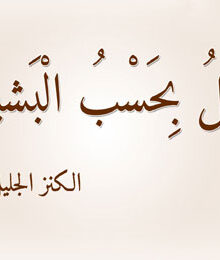 بِحَسْبُ الْبَشِ
الكنز الجليل